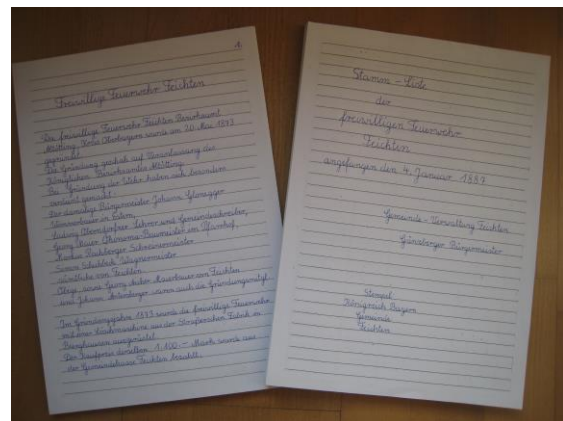 1.
Freiwillige Feuerwehr Feichten
Die freiwillige Feuerwehr Feichten Bezirksamt
Altötting, Kreis Oberbayern wurde am 20. Mai 1873
gegründet.
Die Gründung geschah auf Veranlassung des
Königlichen Bezirksamtes Altötting.
Bei Gründung der Wehr haben sich besonders
verdient gemacht:
Der damalige Bürgermeister Johann
Ludwig Oberndorfner, Lehrer und Gemeindeschreiber,
Georg Maier Ökonomie-Baumeister im Pfarrhof,
Markus Schreinermeister
Simon Wagnermeister
sämtliche von Feichten.
Obige, sowie Georg Mauerbauer von Feichten
und Johann waren auch die Gründungsmitgl.
Im Gründungsjahre 1873 wurde die freiwillige Feuerwehr
mit einer Saugmaschine aus der Fabrik in
ausgerüstet.
Der Kaufpreis derselben 1.100.- Mark wurde aus
der Gemeindekasse Feichten bezahlt.
Stamm - Liste
der
freiwilligen Feuerwehr
Feichten
angefangen den 4. Januar 1887
Gemeinde - Verwaltung Feichten
Günzberger Bürgermeister
Stempel
Königreich Bayern
Gemeinde
Feichten